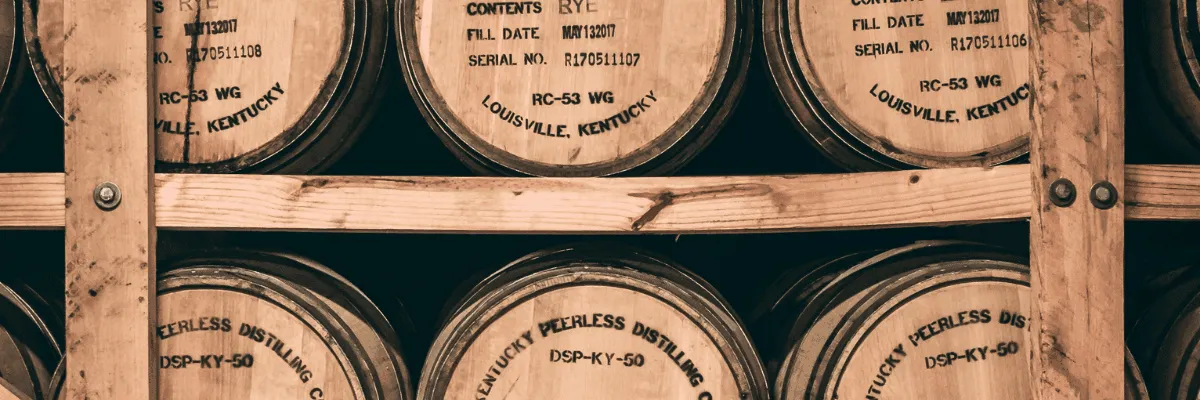 RYE
MAY132017
R170511108
RC-53 WG
KENTUCKY
CONTENTS RYE
FILL DATE MAY132017
SERIAL NO. R170511107
RC-53 WG
LOUISVILLE, KENTUCKY
FILL DATE MAY132017
SERIAL NO. R170511106
RC-53 WG
LOUISVILLE,
EERLESS DISTILLING
DSP-KY-50
KENTUCKY PEERLESS DISTILLING C
DSP-KY-50
TUCKY PEERLESS DIS
DSP-KY-50